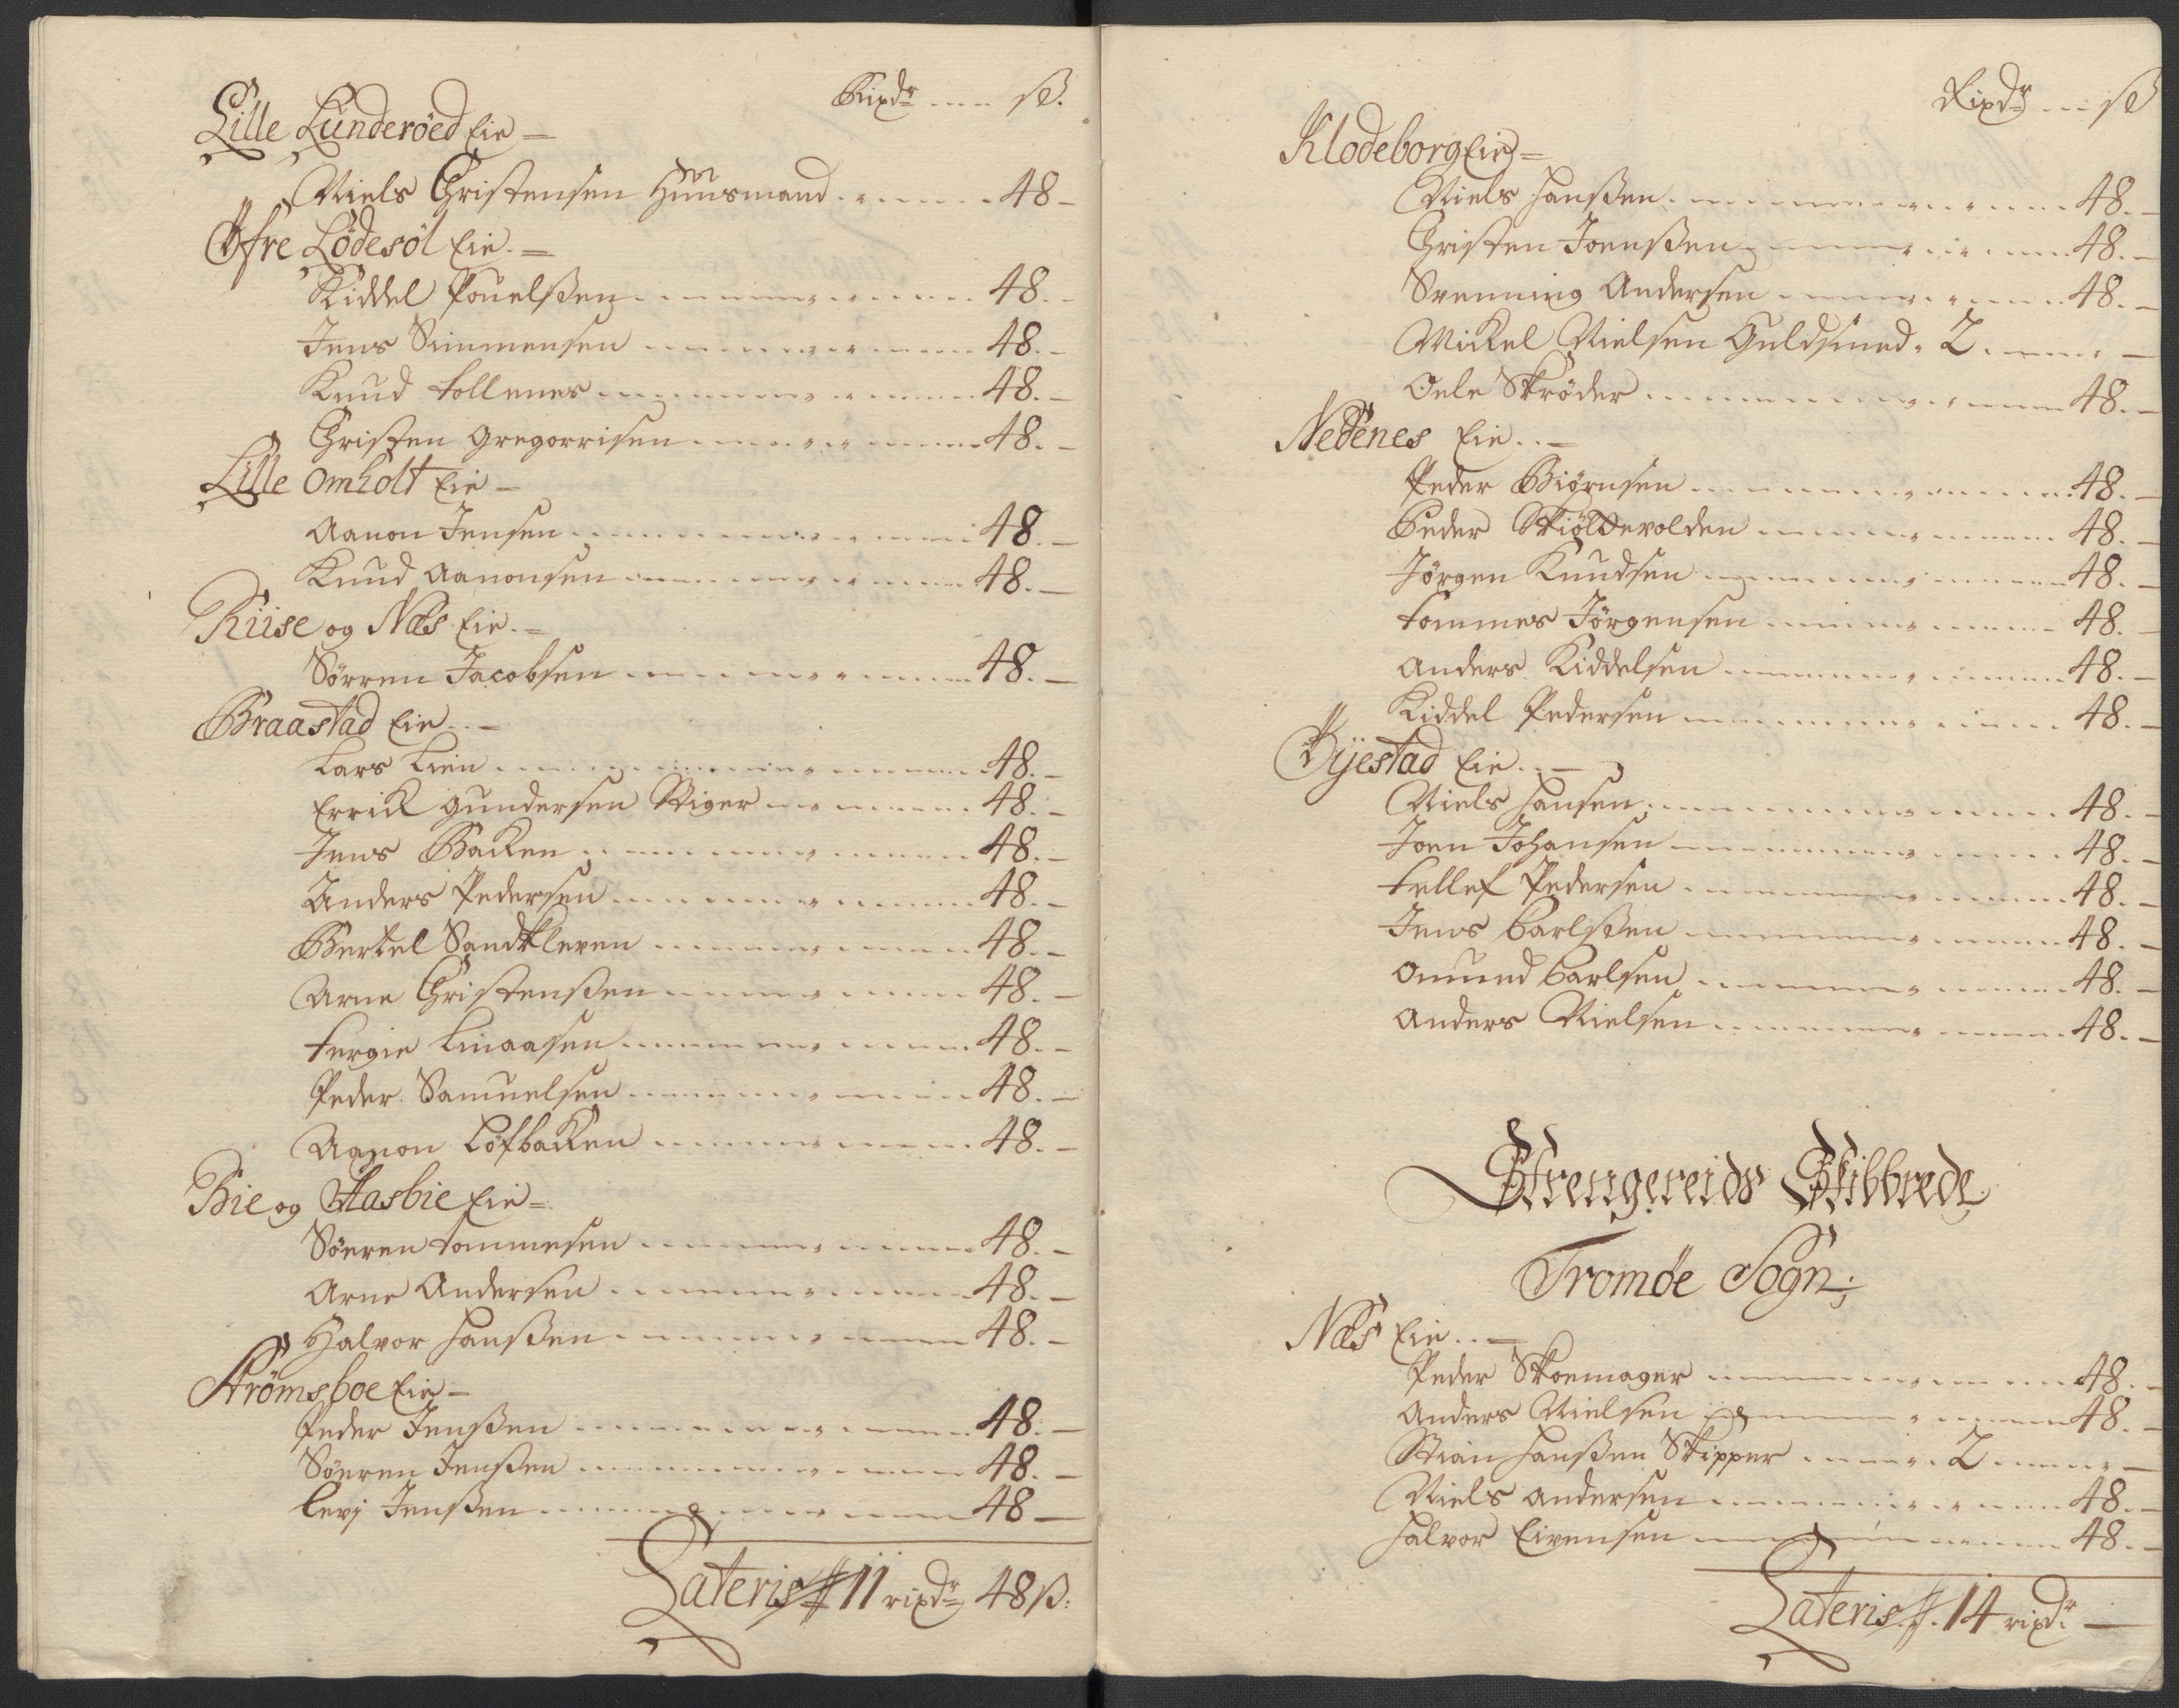 Rixdr .... sk.
Lille Lunderöed Eie —
Niels Christensen Huusmand ........ 48 –
Øfre Lödesöl Eie. =
Kiddel Pouelßen ........ 48. –
Jens Simmensen ........ 48. –
Knud Tollenes ........ 48. –
Christen Gregorrisen ........ 48. –
Lille Omholt Eie –
Aanon Jensen ........ 48. –
Knud Aanonsen ........ 48. –
Riise og Næs Eie. =
Sörren Jacobsen ........ 48. –
Braastad Eie . . –
Lars Lien ........ 48. –
Errick Gundersen Stiger ........ 48. –
Jens Backen ........ 48. –
Anders Pedersen ........ 48. –
Bertel Sandkleven ........ 48. –
Arne Christenßen ........ 48. –
Tergie Linaasen ........ 48. –
Peder Samuelsen ........ 48. –
Aanon Löfbacken ........ 48. –
Bie og Aasbie Eie =
Söeren Tommesen ........ 48. –
Arne Andersen ........ 48. –
Halvor Hanßen ........ 48. –
Strömsboe Eie –
Peder Jenßen ........ 48. –
Söeren Jenßen ........ 48. –
Levj Jenßen ........ 48 –
Lateris # 11 rixdr 48 ß:
Rixdr .... sk
Klodeborg Eie =
Niels Hanßen ........ 48. –
Christen Joenßen ........ 48. –
Svenning Andersen ........ 48. –
Mickel Nielsen Guldsmed . 2 ........ –
Oele Skröder ........ 48. –
Nedenes Eie . . –
Peder Biörnsen ........ 48. –
Peder Skiöldevolden ........ 48. –
Jörgen Knudsen ........ 48. –
Tommes Jörgensen ........ 48. –
Anders Kiddelsen ........ 48. –
Kiddel Pedersen ........ 48. –
Øÿestad Eie . . –
Niels Hansen ........ 48. –
Joen Johansen ........ 48. –
Tellef Pedersen ........ 48. –
Jens Carlßen ........ 48. –
Omund Carlsen ........ 48. –
Anders Nielsen ........ 48. –
Strengereids Skibbrede
Tromöe Sogn:
Næs Eie . . –
Peder Skoemager ........ 48. –
Anders Nielsen ........ 48. –
Stian Hanßen Skipper ...... 2 ...... –
Niels Andersen ........ 48. –
Halvor Eivensen ........ 48. –
Lateris #. 14 rixdr. –